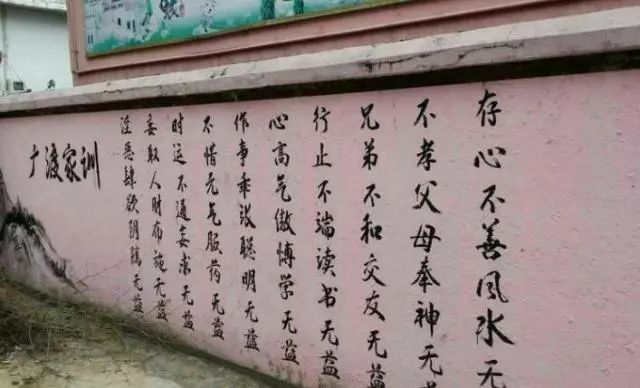 存心不善风水无益
不孝父母奉神无益
兄弟不和交友无益
行止不端读书无益
心高气傲博学无益
作事乖张聪明无益
不惜元气服药无益
时运不通妄求无益
妄取人财布施无益
淫恶肆欲阴骘无益
广渡家训